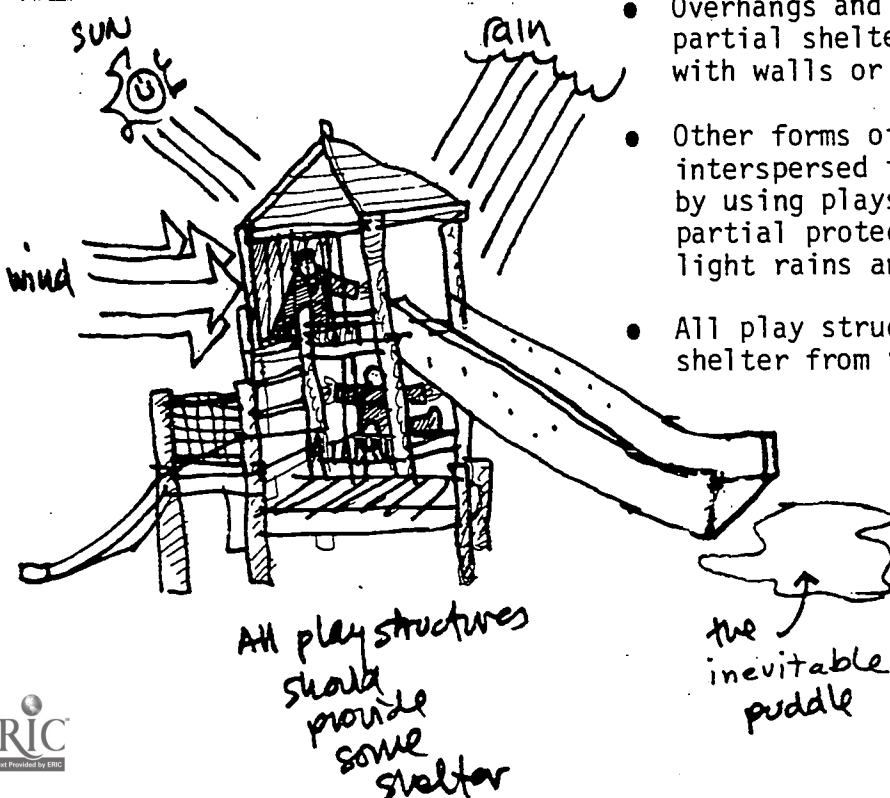 SUN
rain
wind
• Overhangs and
partial shelte
with walls or
• Other forms o
interspersed
by using plays
partial protec
light rains an
• All play struc
shelter from
All play structures
should
provide
some
shelter
the
inevitable
puddle
ERIC
Text Provided by ERIC